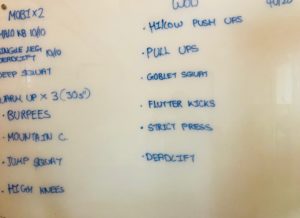 MOBI x 2
HALO KB 10/10
SINGLE LEG
DEADLIFT 10/10
DEEP SQUAT
WARM UP x 3 (30s)
• BURPEES
• MOUNTAIN C.
• JUMP SQUAT
• HIGH KNEES
WOD 40/20
• HI/LOW PUSH UPS
• PULL UPS
• GOBLET SQUAT
• FLUTTER KICKS
• STRICT PRESS
• DEADLIFT